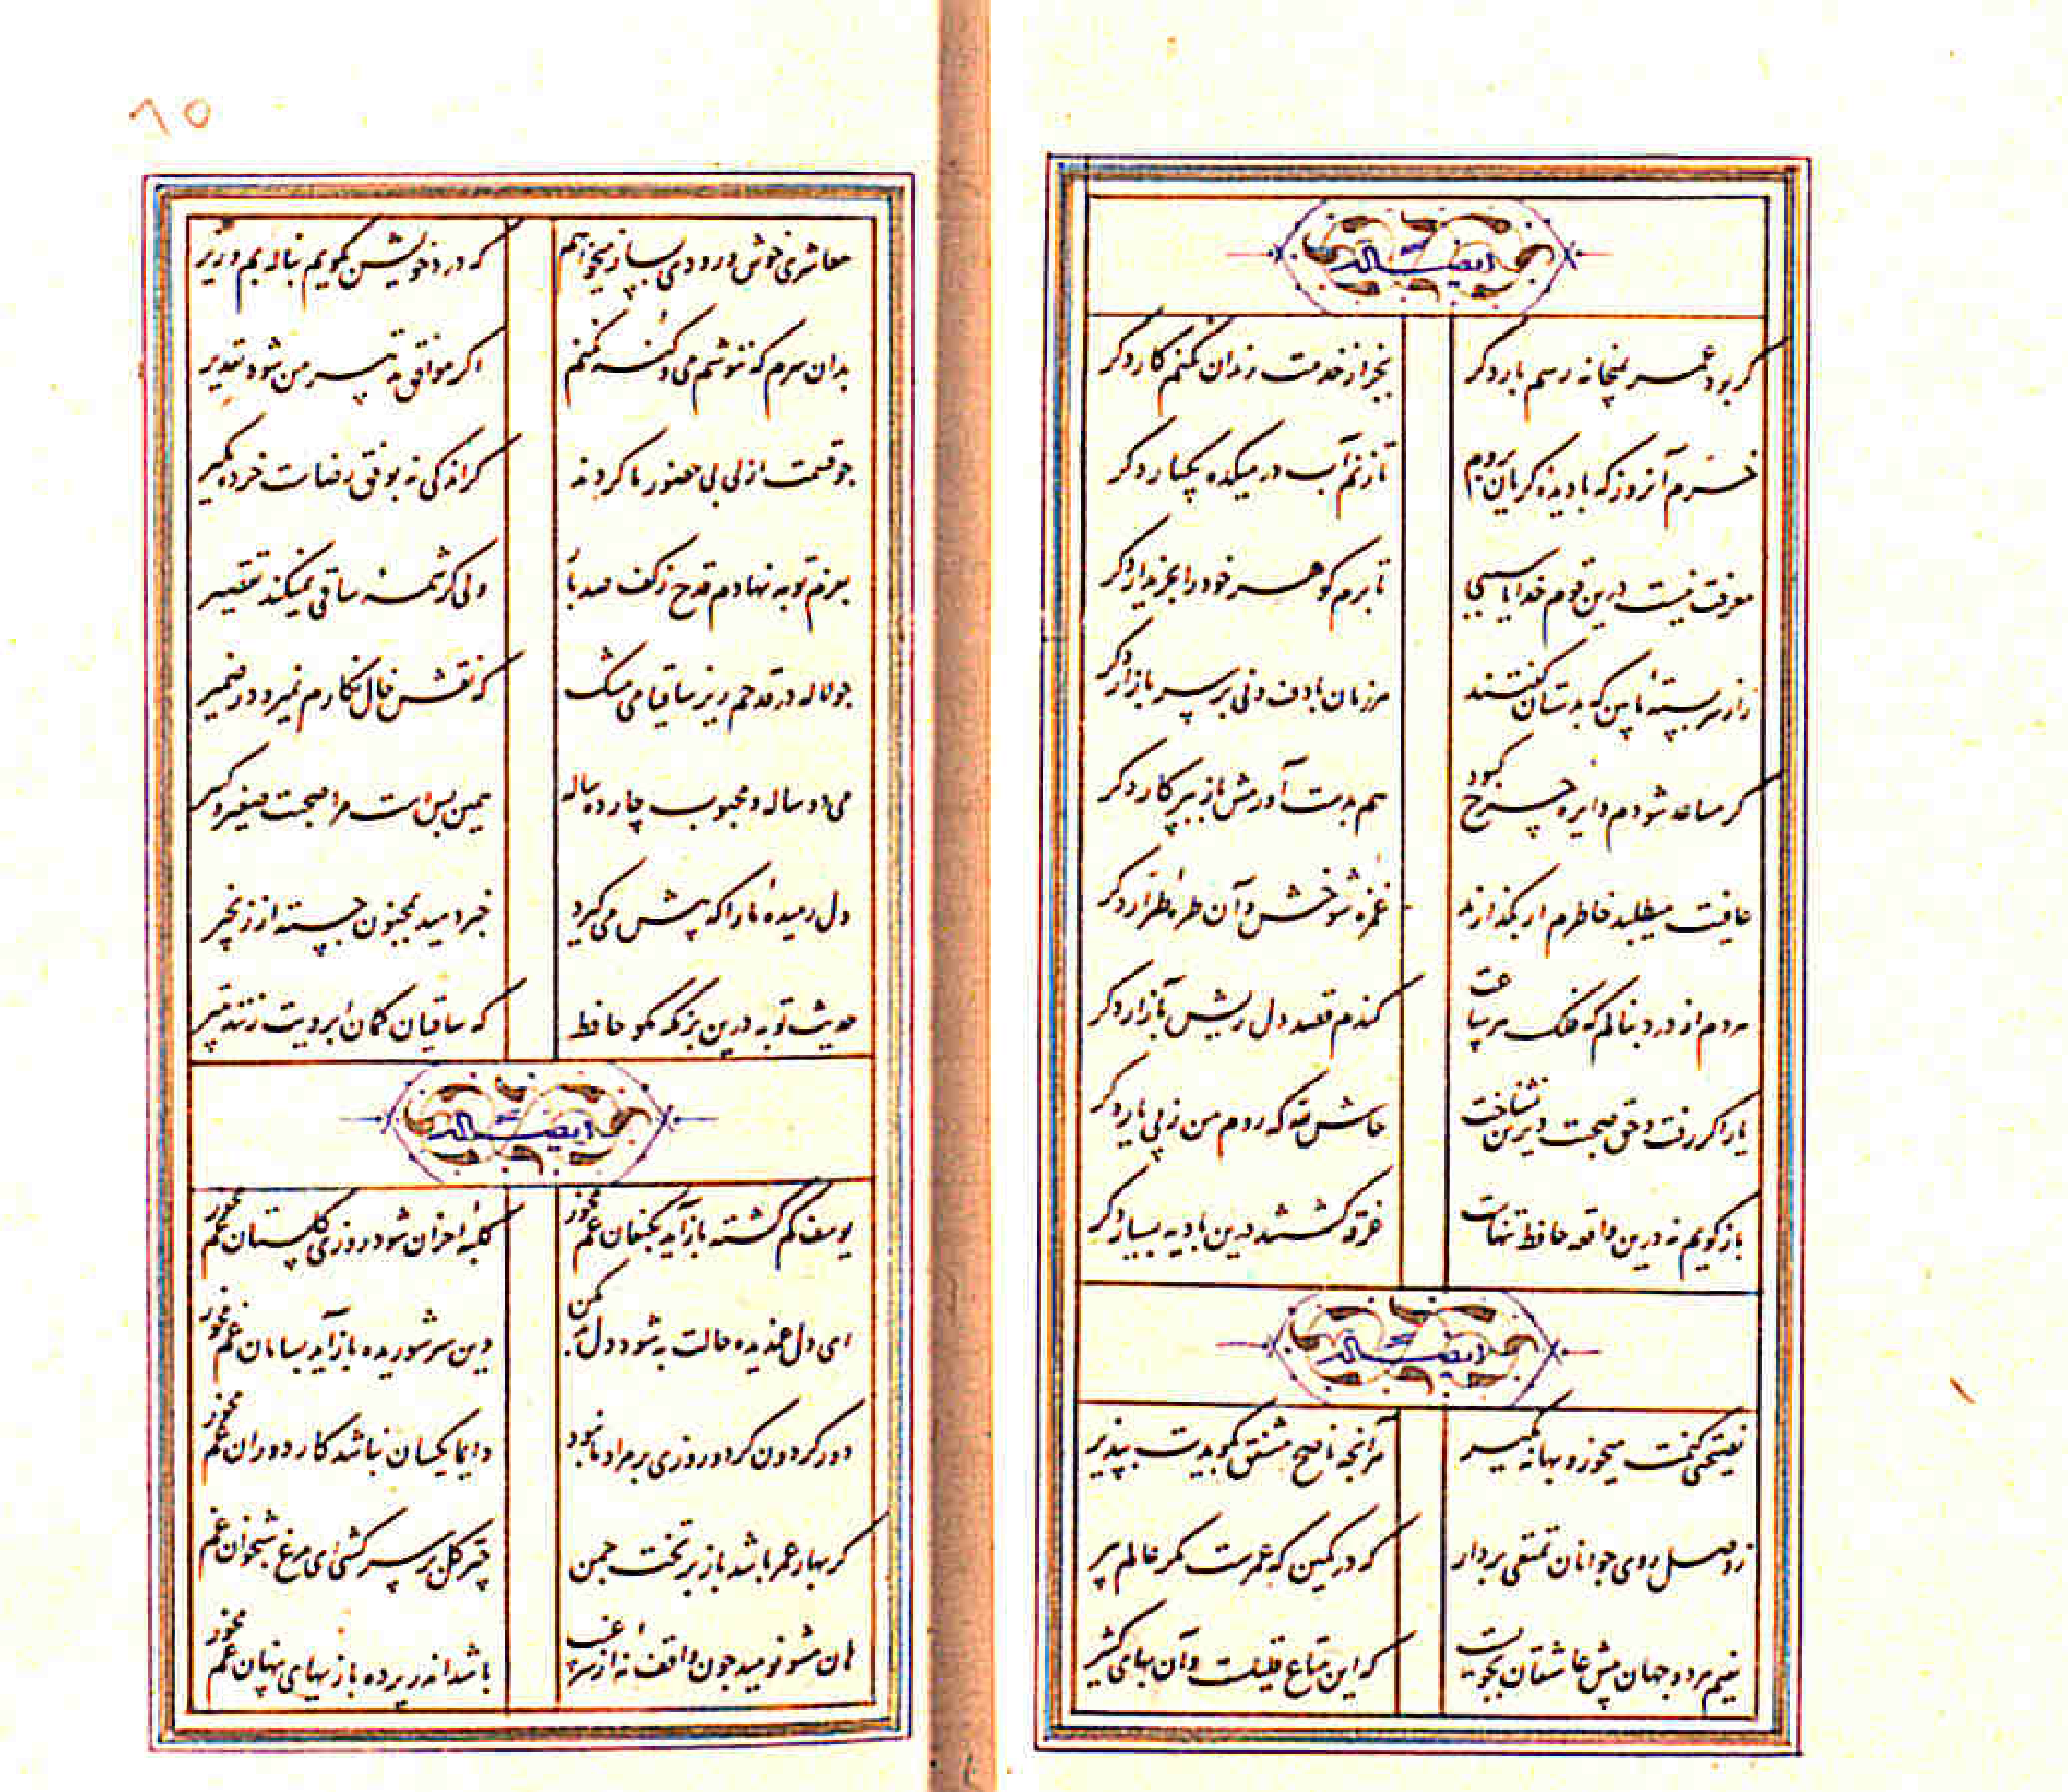 ایضاً له
گر بود عمر بمیخانه رسم بار دگر
بجز از خدمت رندان نکنم کار دگر
خرم آنروز که با دیده گریان بروم
تا زنم آب در میکده یکبار دگر
معرفت نیست درین قوم خدایا سببی
تا برم گوهر خود را بخریدار دگر
راز سربسته ما بین که بدستان گفتند
هر زمان با دف و نی بر سر بازار دگر
گر مساعد شودم دایره چرخ کبود
هم بدست آورمش باز بپرگار دگر
عافیت میطلبد خاطرم ار بگذارند
غمزه شوخش و آن طره طرار دگر
هر دم از درد بنالم که فلک هر ساعت
کندم قصد دل ریش بآزار دگر
یار اگر رفت و حق صحبت دیرین نشناخت
حاش لله که روم من ز پی یار دگر
باز گویم نه درین واقعه حافظ تنهاست
غرقه گشتند درین بادیه بسیار دگر
ایضاً له
نصیحتی کنمت میخور و بهانه مگیر
هر آنچه ناصح مشفق بگویدت بپذیر
ز وصل روی جوانان تمتعی بردار
که در کمین گه عمرست مکر عالم پیر
نعیم هر دو جهان پیش عاشقان بجویست
که این متاع قلیلست و آن بهای کثیر
٦٥
معاشری خوش و رودی بساز میخواهم
که درد خویش بگویم بناله بم و زیر
بدان سرم که ننوشم می و گنه نکنم
اگر موافق تدبیر من شود تقدیر
چو قسمت ازلی بی حضور ما کردند
گر اندکی نه بوفق رضاست خرده مگیر
بعزم توبه نهادم قدح ز کف صد بار
ولی کرشمه ساقی نمیکند تقصیر
چو لاله در قدحم ریز ساقیا می مشک
که نقش خال نگارم نمیرود ز ضمیر
می دو ساله و محبوب چارده ساله
همین بس است مرا صحبت صغیر و کبیر
دل رمیده ما را که پیش می گیرد
خبر دهید بمجنون جسته از زنجیر
حدیث توبه درین بزمگه مگو حافظ
که ساقیان کمان ابرویت زنند بتیر
ایضاً له
یوسف گم گشته باز آید بکنعان غم مخور
کلبه احزان شود روزی گلستان غم مخور
ای دل غمدیده حالت به شود دل بد مکن
وین سر شوریده باز آید بسامان غم مخور
دور گردون گر دو روزی بر مراد ما نبود
دایما یکسان نباشد کار دوران غم مخور
گر بهار عمر باشد باز بر تخت چمن
چتر گل بر سر کشی ای مرغ شبخوان غم
هان مشو نومید چون واقف نه از سر غیب
باشد اندر پرده بازیهای پنهان غم مخور